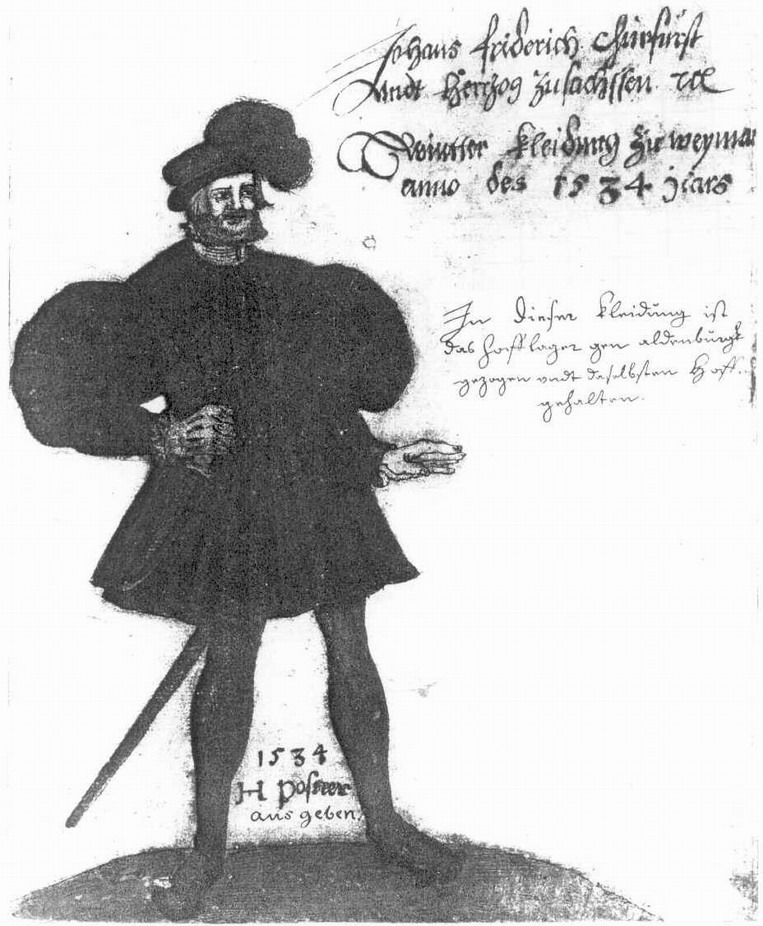 Johans friderich Churfurst
undt Hertzog zu sachssen
Wintter kleidung zu weymar
anno des 1534 jars
In dieser kleidung ist
das hofflager gen aldenburgk
gezogen undt daselbsten Hoff
gehalten.
1534
H
aus geben.